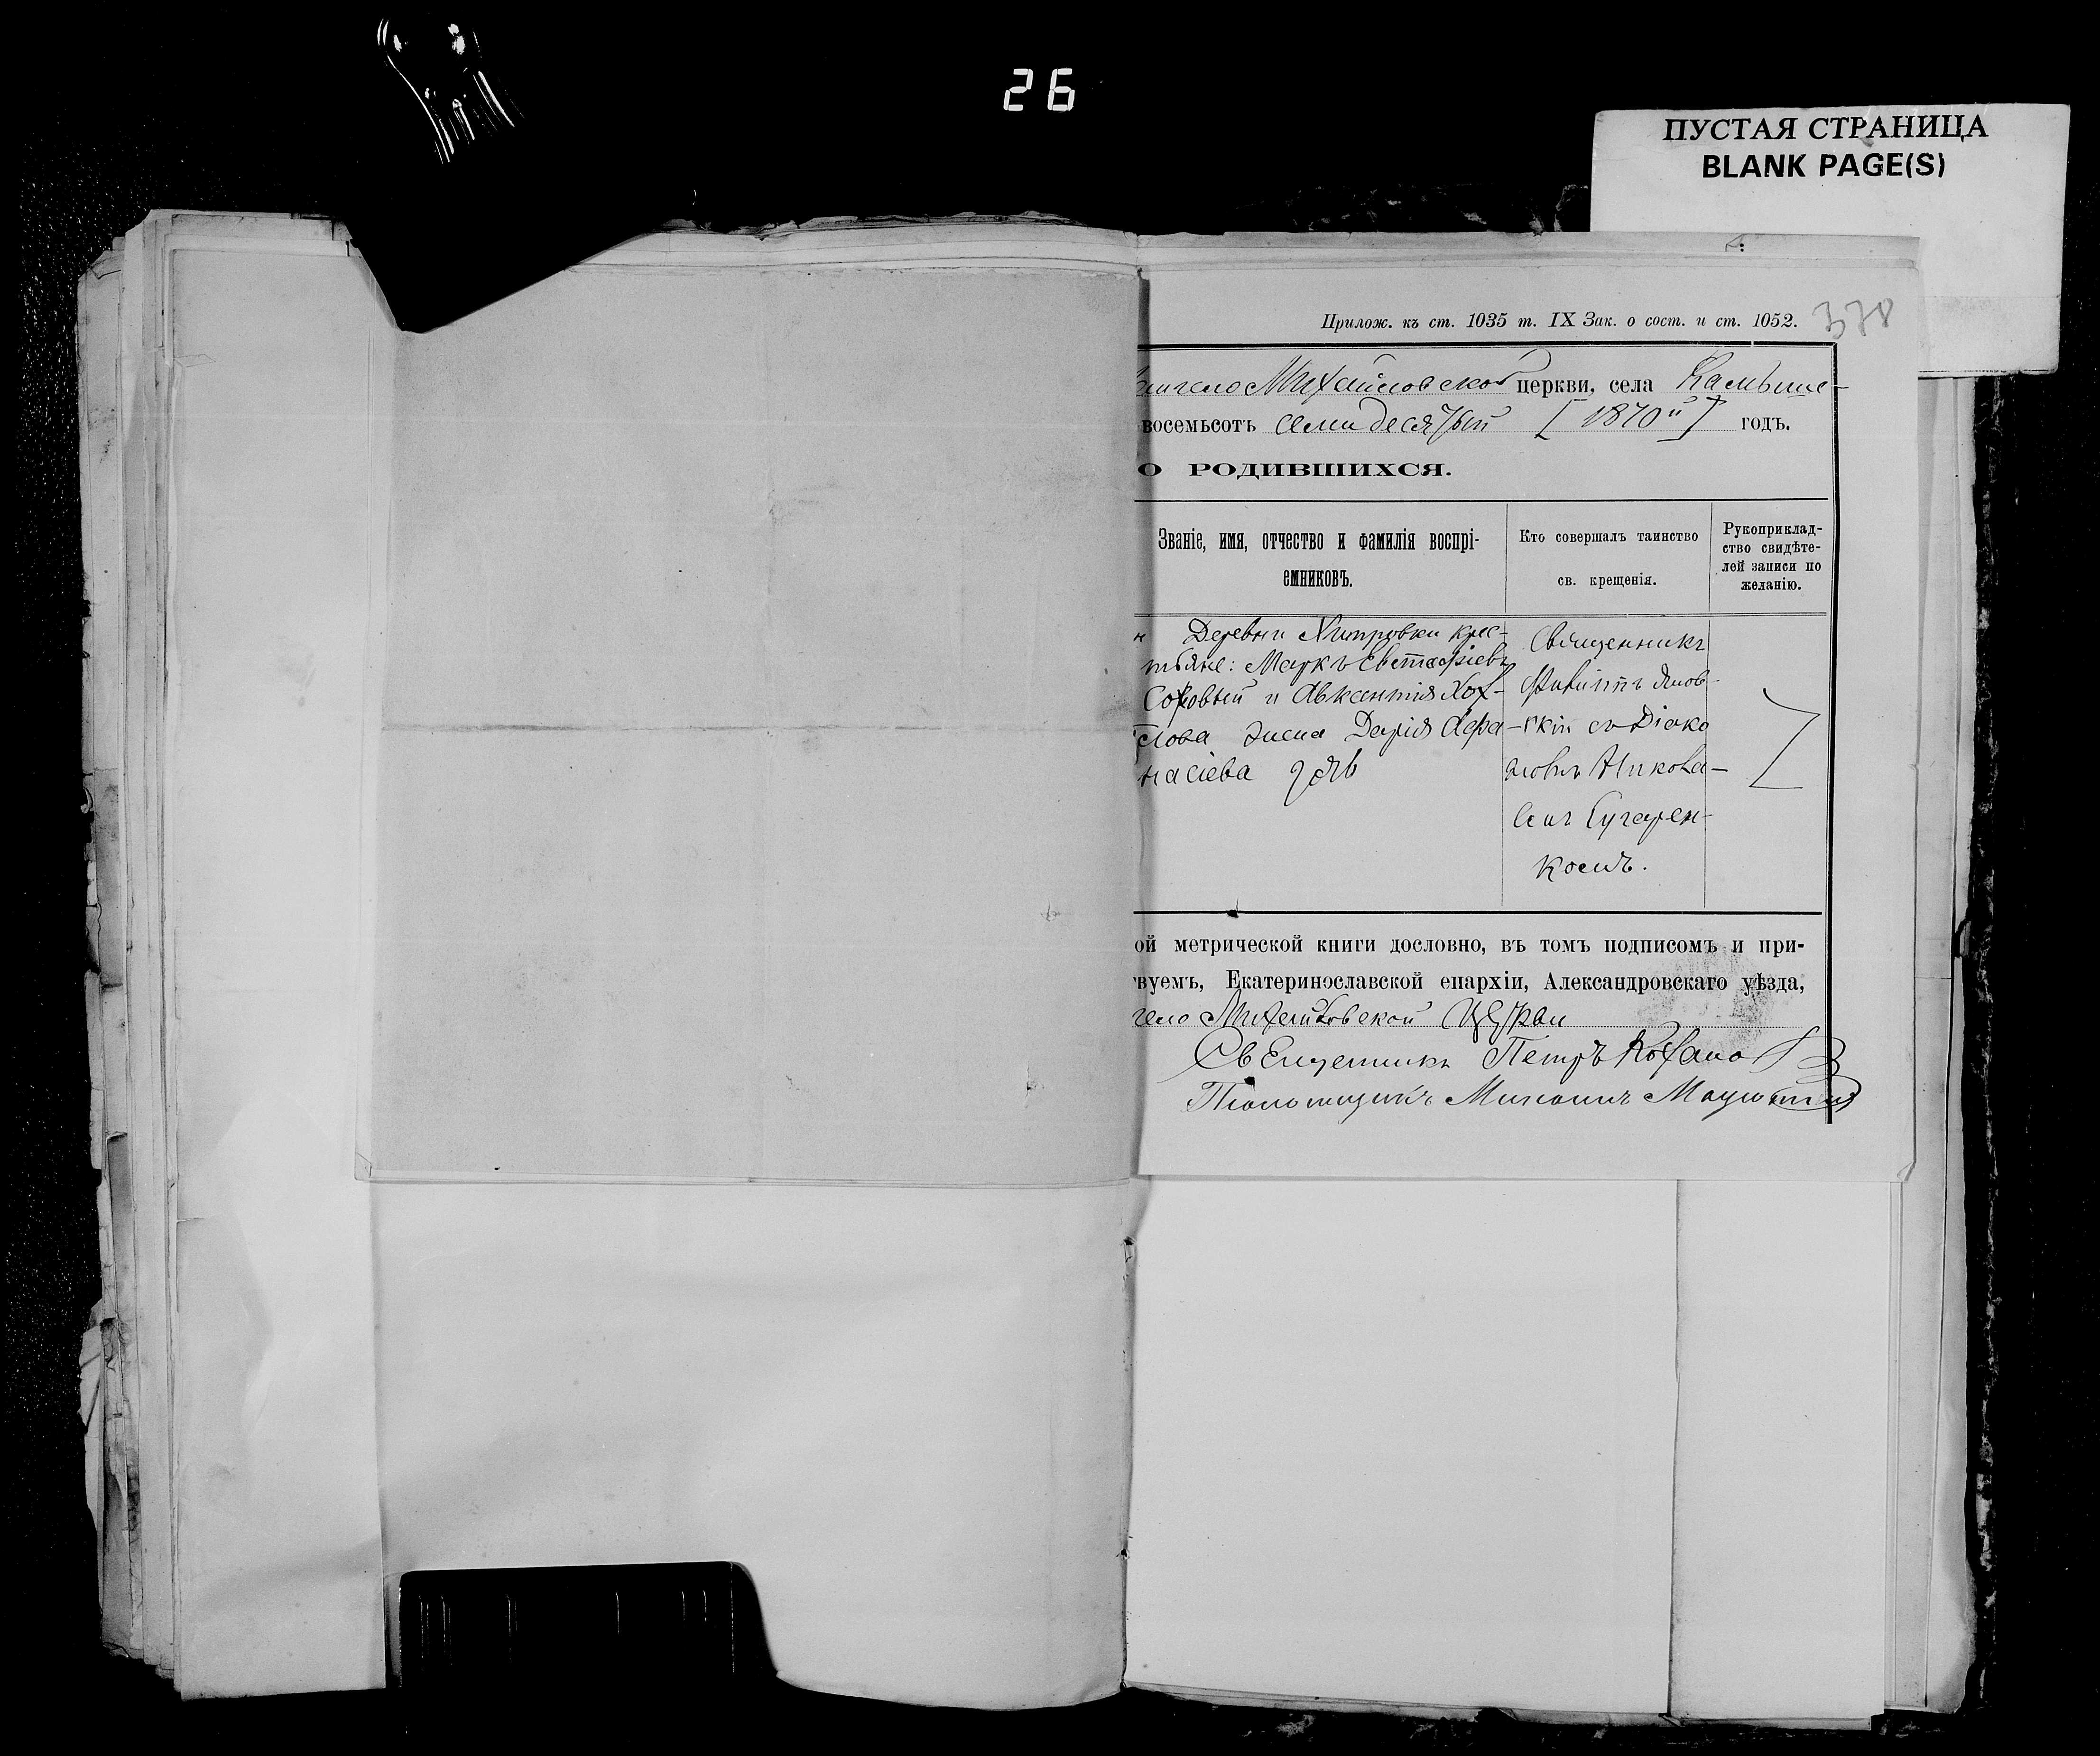 26
ПУСТАЯ СТРАНИЦА
BLANK PAGE(S)
Прилож. къ ст. 1035 т. IX Зак. о сост. и ст. 1052.
378
Михайловской церкви, села Камыше-
восемьсотъ семидесятый [1870й] годъ.
О РОДИВШИХСЯ.
Званіе, имя, отчество и фамилія воспрі-
емниковъ.
Кто совершалъ таинство
св. крещенія.
Рукоприклад-
ство свидѣте-
лей записи по
желанію.
Деревни Хитровки крес-
тьяне: Маркъ Евстафіевъ
и Авксентія Хох-
лова жена Дарія Афа-
насіева
Священникъ
Янов-
скій съ Діако
номъ Никола-
емъ Сугарен-
комъ.
ой метрической книги дословно, въ томъ подписомъ и при-
вуемъ, Екатеринославской епархіи, Александровскаго уѣзда,
гело Михайловской Церкви
Священникъ Петръ
Псаломщикъ